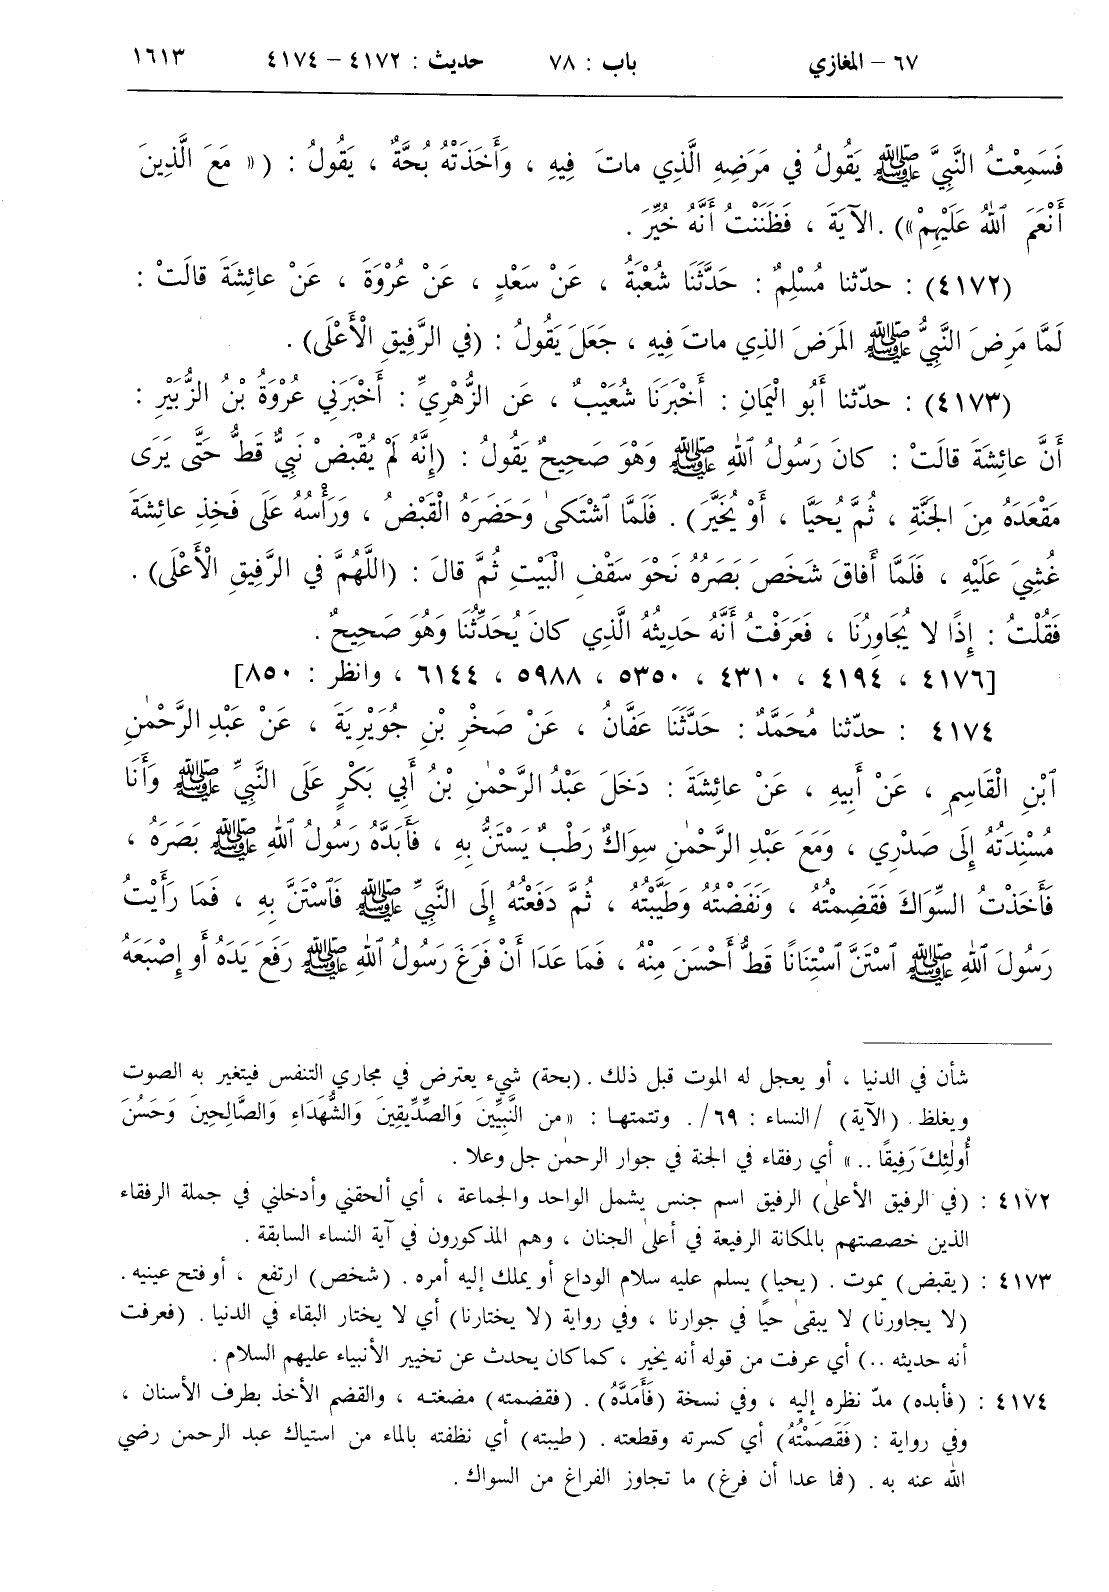 ٦٧ – المغازي باب : ٧٨ حديث : ٤١٧٢ – ٤١٧٤ ١٦١٣
فَسَمِعْتُ النَّبِيَّ ﷺ يَقُولُ في مَرَضِهِ الَّذِي ماتَ فِيهِ ، وَأَخَذَتْهُ بُحَّةٌ ، يَقُولُ : («مَعَ الَّذِينَ
أَنْعَمَ ٱللهُ عَلَيْهِمْ») . الآيَةَ ، فَظَنَنْتُ أَنَّهُ خُيِّرَ .
(٤١٧٢) : حدّثنا مُسْلِمٌ : حَدَّثَنَا شُعْبَةُ ، عَنْ سَعْدٍ ، عَنْ عُرْوَةَ ، عَنْ عائِشَةَ قالَتْ :
لَمَّا مَرِضَ النَّبِيُّ ﷺ المَرَضَ الذِي ماتَ فِيهِ ، جَعَلَ يَقُولُ : (في الرَّفِيقِ الْأَعْلَى) .
(٤١٧٣) : حدّثنا أَبُو الْيَمَانِ : أَخْبَرَنَا شُعَيْبٌ ، عَنِ الزُّهْرِيِّ : أَخْبَرَنِي عُرْوَةُ بْنُ الزُّبَيْرِ :
أَنَّ عائِشَةَ قالَتْ : كانَ رَسُولُ ٱللهِ ﷺ وَهْوَ صَحِيحٌ يَقُولُ : (إِنَّهُ لَمْ يُقْبَضْ نَبِيٌّ قَطُّ حَتَّى يَرَى
مَقْعَدَهُ مِنَ الجَنَّةِ ، ثُمَّ يُحَيَّا ، أَوْ يُخَيَّرَ) . فَلَمَّا ٱشْتَكىٰ وَحَضَرَهُ الْقَبْضُ ، وَرَأْسُهُ عَلَى فَخِذِ عائِشَةَ
غُشِيَ عَلَيْهِ ، فَلَمَّا أَفاقَ شَخَصَ بَصَرُهُ نَحْوَ سَقْفِ الْبَيْتِ ثُمَّ قالَ : (اللَّهُمَّ في الرَّفِيقِ الْأَعْلَى) .
فَقُلْتُ : إِذًا لا يُجَاوِرُنَا ، فَعَرَفْتُ أَنَّهُ حَدِيثُهُ الَّذِي كانَ يُحَدِّثُنَا وَهُوَ صَحِيحٌ .
[٤١٧٦ ، ٤١٩٤ ، ٤٣١٠ ، ٥٣٥٠ ، ٥٩٨٨ ، ٦١٤٤ ، وانظر : ٨٥٠]
٤١٧٤ : حدّثنا مُحَمَّدٌ : حَدَّثَنَا عَفَّانُ ، عَنْ صَخْرِ بْنِ جُوَيْرِيَةَ ، عَنْ عَبْدِ الرَّحْمٰنِ
ٱبْنِ الْقَاسِمِ ، عَنْ أَبِيهِ ، عَنْ عائِشَةَ : دَخَلَ عَبْدُ الرَّحْمٰنِ بْنُ أَبِي بَكْرٍ عَلَى النَّبِيِّ ﷺ وَأَنَا
مُسْنِدَتُهُ إِلَى صَدْرِي ، وَمَعَ عَبْدِ الرَّحْمٰنِ سِوَاكٌ رَطْبٌ يَسْتَنُّ بِهِ ، فَأَبَدَّهُ رَسُولُ ٱللهِ ﷺ بَصَرَهُ ،
فَأَخَذْتُ السِّوَاكَ فَقَضِمْتُهُ ، وَنَفَضْتُهُ وَطَيَّبْتُهُ ، ثُمَّ دَفَعْتُهُ إِلَى النَّبِيِّ ﷺ فَٱسْتَنَّ بِهِ ، فَمَا رَأَيْتُ
رَسُولَ ٱللهِ ﷺ ٱسْتَنَّ ٱسْتِنَانًا قَطُّ أَحْسَنَ مِنْهُ ، فَمَا عَدَا أَنْ فَرَغَ رَسُولُ ٱللهِ ﷺ رَفَعَ يَدَهُ أَو إِصْبَعَهُ
شأن في الدنيا ، أو يعجل له الموت قبل ذلك . (بحة) شيء يعترض في مجاري التنفس فيتغير به الصوت
ويغلظ . (الآية) /النساء : ٦٩/ . وتتمتها : «من النَّبِيِّينَ وَالصِّدِّيقِينَ وَالشُّهَدَاءِ وَالصَّالِحِينَ وَحَسُنَ
أُولٰئِكَ رَفِيقًا ..» أي رفقاء في الجنة في جوار الرحمٰن جل وعلا .
٤١٧٢ : (في الرفيق الأعلىٰ) الرفيق اسم جنس يشمل الواحد والجماعة ، أي ألحقني وأدخلني في جملة الرفقاء
الذين خصصتهم بالمكانة الرفيعة في أعلىٰ الجنان ، وهم المذكورون في آية النساء السابقة .
٤١٧٣ : (يقبض) يموت . (يحيا) يسلم عليه سلام الوداع أو يملك إليه أمره . (شخص) ارتفع ، أو فتح عينيه .
(لا يجاورنا) لا يبقىٰ حيًا في جوارنا ، وفي رواية (لا يختارنا) أي لا يختار البقاء في الدنيا . (فعرفت
أنه حديثه ..) أي عرفت من قوله أنه يخير ، كما كان يحدث عن تخيير الأنبياء عليهم السلام .
٤١٧٤ : (فأبده) مدّ نظره إليه ، وفي نسخة (فَأَمَدَّهُ) . (فقضمته) مضغته ، والقضم الأخذ بطرف الأسنان ،
وفي رواية : (فَقَصَمْتُهُ) أي كسرته وقطعته . (طيبته) أي نظفته بالماء من استياك عبد الرحمن رضي
الله عنه به . (فما عدا أن فرغ) ما تجاوز الفراغ من السواك .